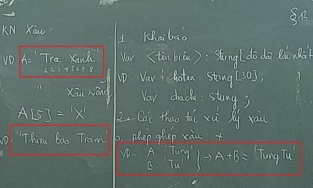 KN Xâu
VD A = 'Tra Xanh'
1 2 3 4 5 6 7 8
" Xâu rỗng
A[5] = 'X'
VD: 'Thieu Bao Tram'
1 Khai báo
Var <tên biến> : String [độ dài lớn nhất
VD Var hoten: string [30];
Var diachi: string;
2 Các thao tác xử lý xâu
a, phép ghép xâu: +
VD: A 'Tung'
B 'Tu'
→ A + B = 'Tung Tu